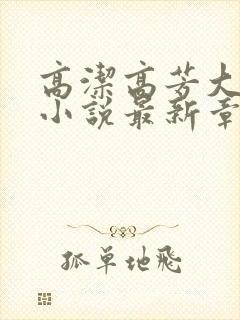 高潔高芳大
小說最新章
孤單地飛